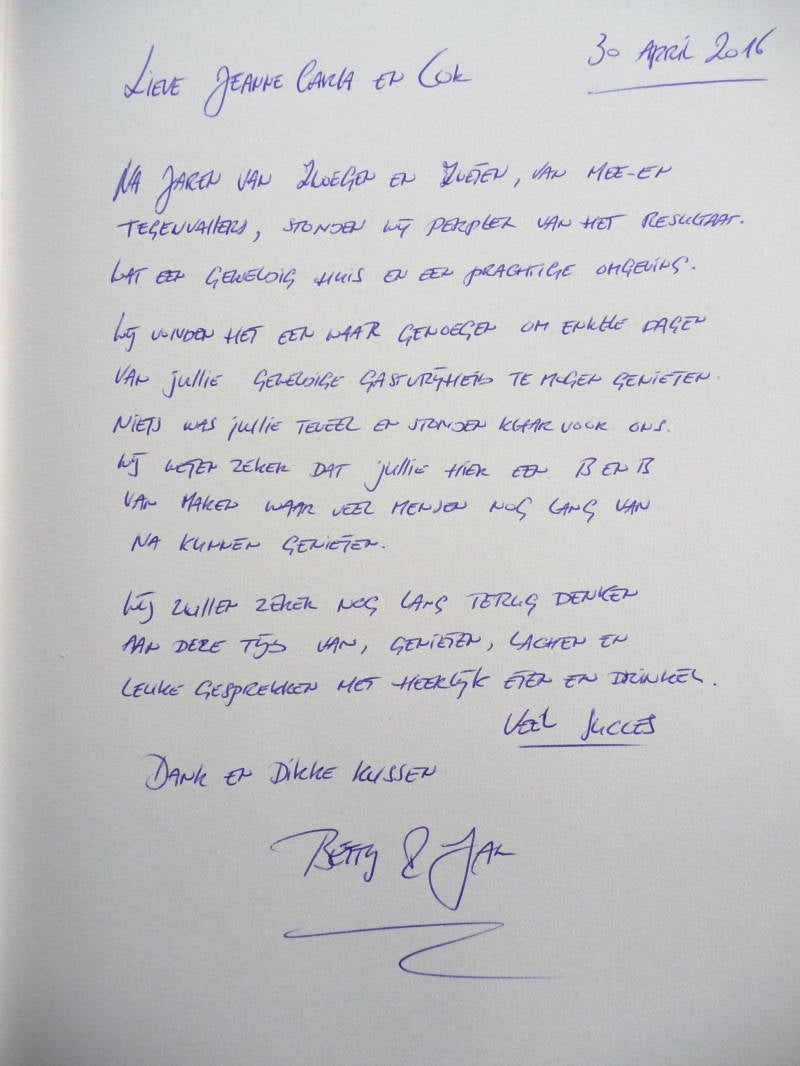 30 APRIL 2016
LIEVE JEANNE CARLA EN COK
NA JAREN VAN ZWOEGEN EN ZWETEN, VAN MEE-EN
TEGENVALLERS, STONDEN WIJ PERPLEX VAN HET RESULTAAT.
WAT EEN GEWELDIG HUIS EN EEN PRACHTIGE OMGEVING.
WIJ VONDEN HET EEN WAAR GENOEGEN OM ENKELE DAGEN
VAN JULLIE GEWELDIGE GASTVRIJHEID TE MOGEN GENIETEN.
NIETS WAS JULLIE TEVEEL EN STONDEN KLAAR VOOR ONS.
WIJ WETEN ZEKER DAT JULLIE HIER EEN B EN B
VAN MAKEN WAAR VEEL MENSEN NOG LANG VAN
NA KUNNEN GENIETEN.
WIJ ZULLEN ZEKER NOG LANG TERUG DENKEN
AAN DEZE TIJD VAN, GENIETEN, LACHEN EN
LEUKE GESPREKKEN MET HEERLIJK ETEN EN DRINKEN.
VEEL SUCCES
DANK EN DIKKE KUSSEN
BETTY & JAN